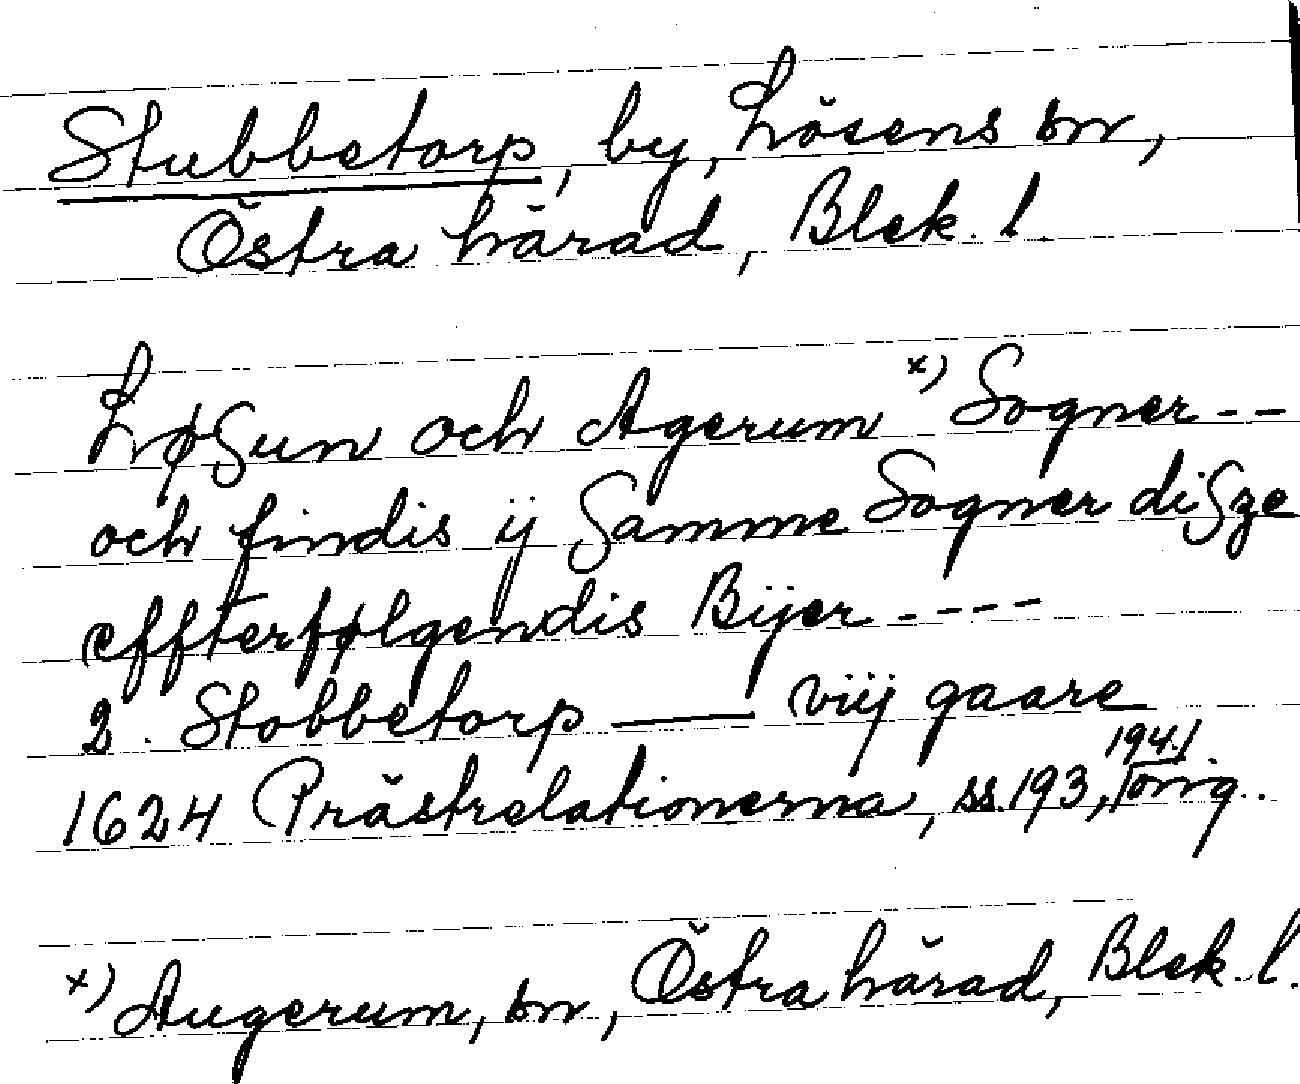 Stubbetorp, by, Lösens sn,
Östra härad, Blek. l.
LøSun och Agerum x) Sogner --
och findis ij Samme Sogner diSze
effterfølgendis Bijer ----
2. Stobbetorp —— viij gaare
1624 Prästrelationerna, ss. 193, 194. / orig.
x) Augerum, sn, Östra härad, Blek. l.